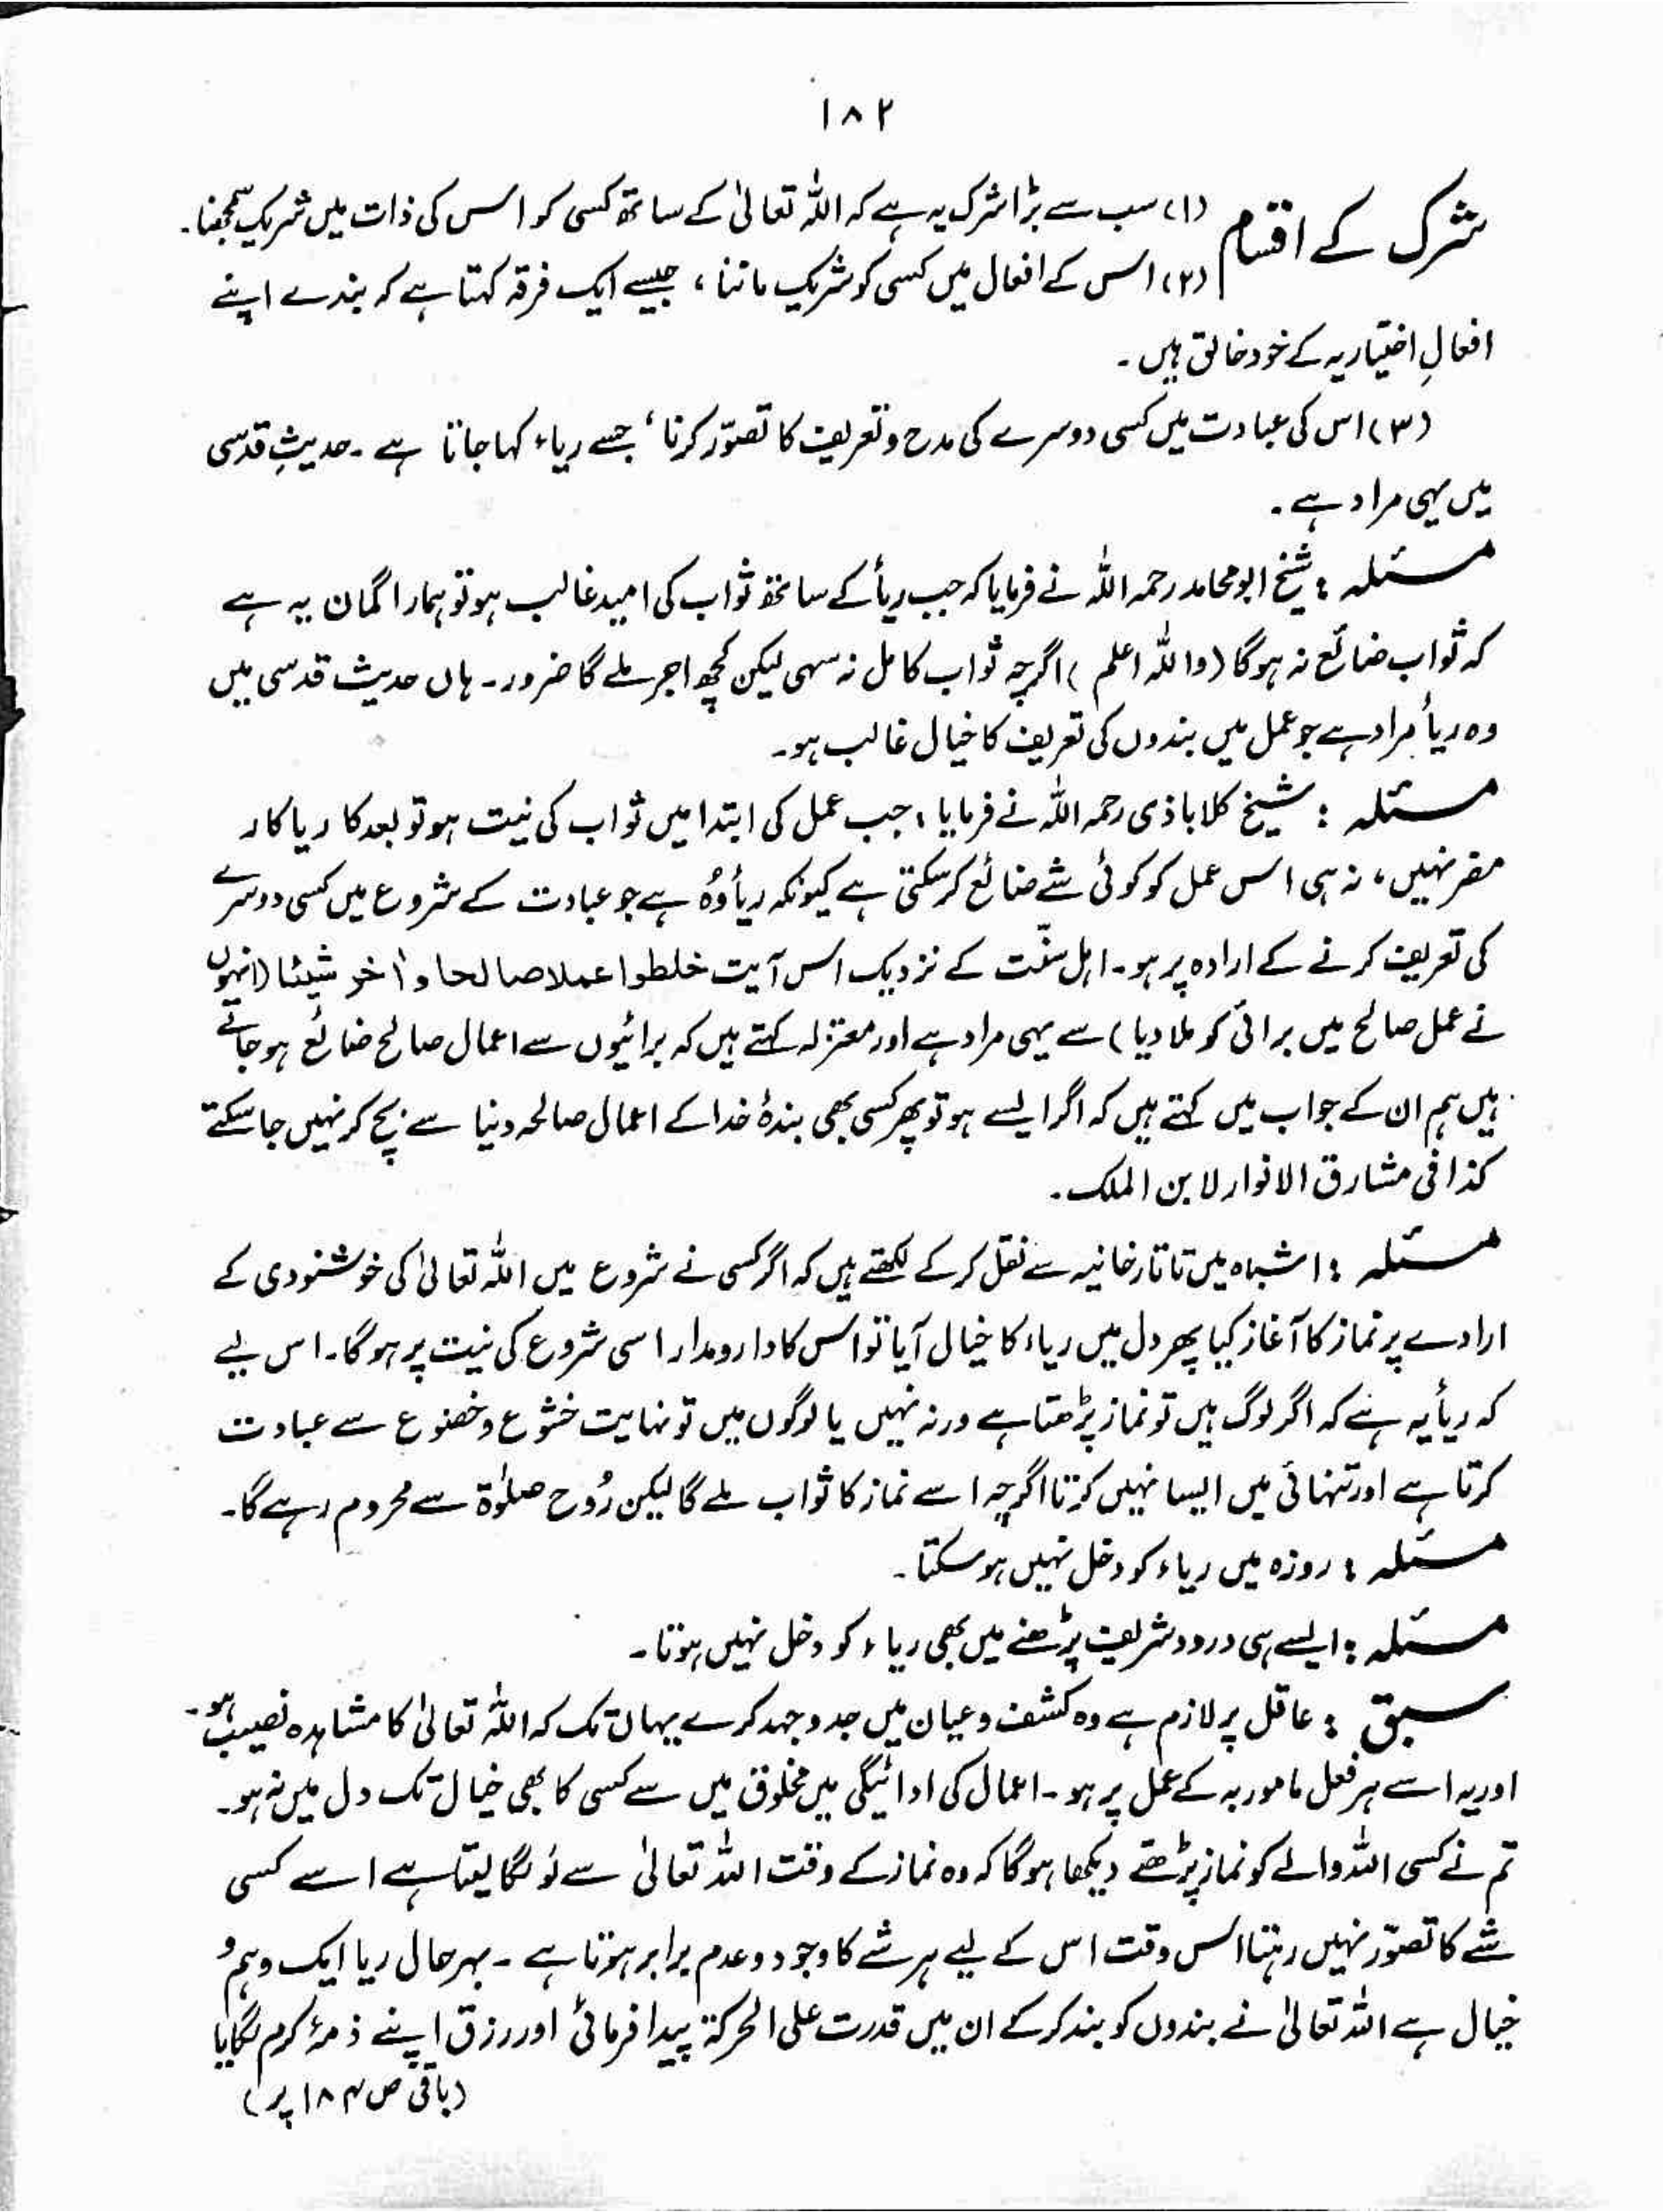 ۱۸۲
شرک کے اقسام (۱) سب سے بڑا شرک یہ ہے کہ اللہ تعالیٰ کے ساتھ کسی کو اس کی ذات میں شریک سمجھنا۔
(۲) اس کے افعال میں کسی کو شریک ماننا، جیسے ایک فرقہ کہتا ہے کہ بندے اپنے
افعالِ اختیاریہ کے خود خالق ہیں۔
(۳) اس کی عبادت میں کسی دوسرے کی مدح و تعریف کا تصوّر کرنا، جسے ریاء کہا جاتا ہے۔ حدیثِ قدسی
میں یہی مراد ہے۔
مسئلہ: شیخ ابو محامد رحمہ اللہ نے فرمایا کہ جب ریأ کے ساتھ ثواب کی امید غالب ہو تو ہمارا گمان یہ ہے
کہ ثواب ضائع نہ ہوگا (واللہ اعلم) اگرچہ ثواب کامل نہ سہی لیکن کچھ اجر ملے گا ضرور۔ ہاں حدیث قدسی میں
وہ ریأ مراد ہے جو عمل میں بندوں کی تعریف کا خیال غالب ہو۔
مسئلہ: شیخ کلاباذی رحمہ اللہ نے فرمایا، جب عمل کی ابتدا میں ثواب کی نیت ہو تو بعد کا ریا کار
مضر نہیں، نہ ہی اس عمل کو کوئی شے ضائع کرسکتی ہے کیونکہ ریأ وُہ ہے جو عبادت کے شروع میں کسی دوسرے
کی تعریف کرنے کے ارادہ پر ہو۔ اہل سنّت کے نزدیک اس آیت خلطوا عملا صالحا و اٰخر شیئا (انہوں
نے عمل صالح میں برائی کو ملا دیا) سے یہی مراد ہے اور معتزلہ کہتے ہیں کہ برائیوں سے اعمال صالح ضائع ہوجاتے
ہیں ہم ان کے جواب میں کہتے ہیں کہ اگر ایسے ہو تو پھر کسی بھی بندۂ خدا کے اعمال صالحہ دنیا سے بچ کر نہیں جاسکتے
کذا فی مشارق الانوار لابن الملک۔
مسئلہ: اشباہ میں تاتارخانیہ سے نقل کرکے لکھتے ہیں کہ اگر کسی نے شروع میں اللہ تعالیٰ کی خوشنودی کے
ارادے پر نماز کا آغاز کیا پھر دل میں ریاء کا خیال آیا تو اس کا دارومدار اسی شروع کی نیت پر ہوگا۔ اس لیے
کہ ریأ یہ ہے کہ اگر لوگ ہیں تو نماز پڑھتا ہے ورنہ نہیں یا لوگوں میں تو نہایت خشوع و خضوع سے عبادت
کرتا ہے اور تنہائی میں ایسا نہیں کرتا اگرچہ اسے نماز کا ثواب ملے گا لیکن رُوح صلوٰۃ سے محروم رہے گا۔
مسئلہ: روزہ میں ریاء کو دخل نہیں ہوسکتا۔
مسئلہ: ایسے ہی درود شریف پڑھنے میں بھی ریاء کو دخل نہیں ہوتا۔
سبق: عاقل پر لازم ہے وہ کشف و عیان میں جدوجہد کرے یہاں تک کہ اللہ تعالیٰ کا مشاہدہ نصیب ہو۔
اور یہ اسے ہر فعل مامور بہ کے عمل پر ہو۔ اعمال کی ادائیگی میں مخلوق میں سے کسی کا بھی خیال تک دل میں نہ ہو۔
تم نے کسی اللہ والے کو نماز پڑھتے دیکھا ہوگا کہ وہ نماز کے وقت اللہ تعالیٰ سے لَو لگا لیتا ہے اسے کسی
شے کا تصوّر نہیں رہتا اس وقت اس کے لیے ہر شے کا وجود و عدم برابر ہوتا ہے۔ بہرحال ریا ایک وہم و
خیال ہے اللہ تعالیٰ نے بندوں کو بند کرکے ان میں قدرت علی الحرکۃ پیدا فرمائی اور رزق اپنے ذمۂ کرم لگایا
(باقی ص ۱۸۴ پر)